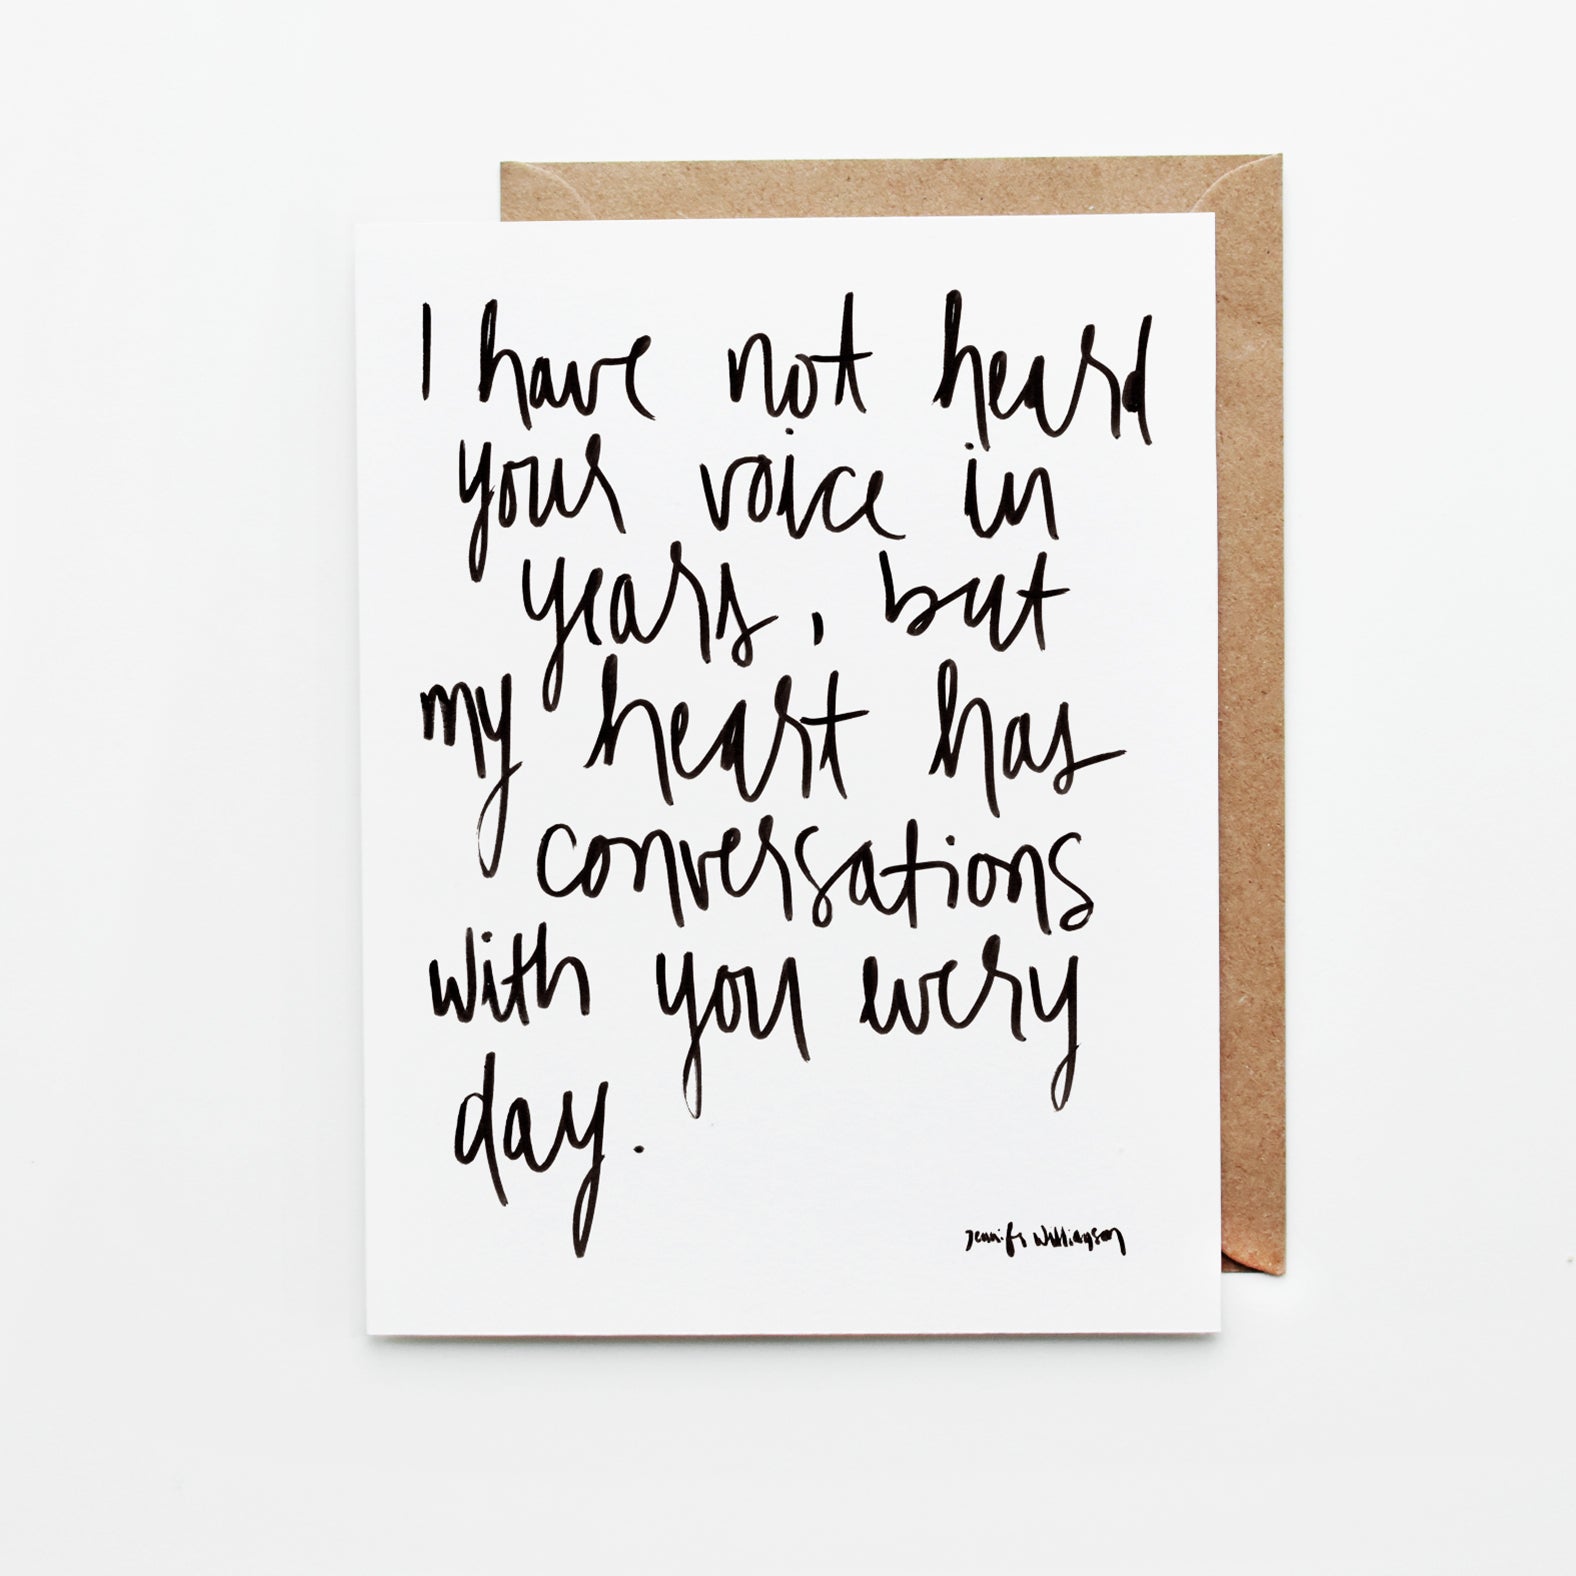 I have not heard
your voice in
years, but
my heart has
conversations
with you every
day.
Jennifer Williamson